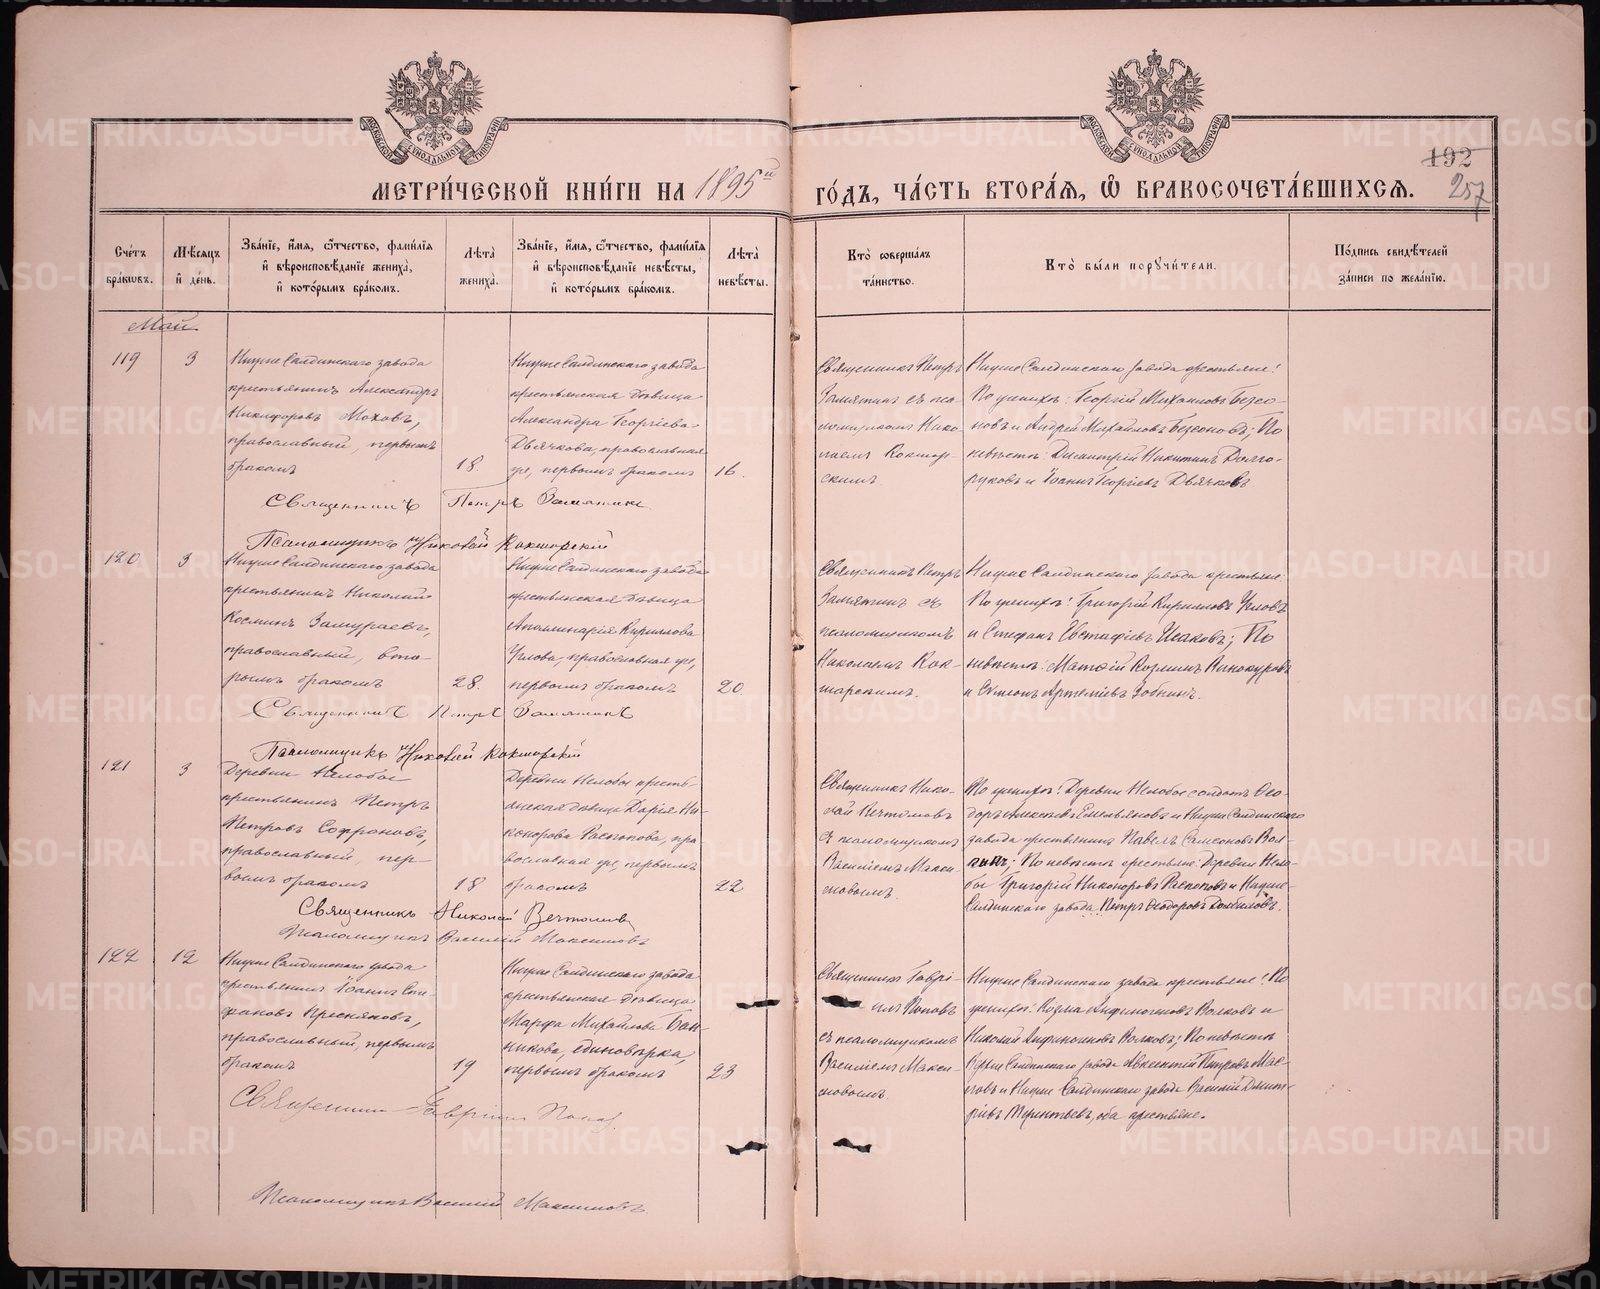 МЕТРИ́ЧЕСКОЙ КНИ́ГИ НА 1895й ГО́ДЪ, ЧА́СТЬ ВТОРА́Я, Ѡ БРАКОСОЧЕТА́ВШИХСЯ.
192
257
Сче́тъ бра́ковъ.
Мѣ́сяцъ и де́нь.
Зва́нїе, и́мя, ѻ́тчество, фами́лїя и вѣроисповѣ́данїе жениха̀, и кото́рымъ бра́комъ.
Лѣта̀ жениха̀.
Зва́нїе, и́мя, ѻ́тчество, фами́лїя и вѣроисповѣ́данїе невѣ́сты, и кото́рымъ бра́комъ.
Лѣта̀ невѣ́сты.
Кто̀ соверша́лъ та́инство.
Кто̀ бы́ли порꙋчи́тели.
По́дпись свидѣ́телей за́писи по жела́нїю.
Май
119
3
Нижне Салдинскаго завода
крестьянинъ Александръ
Никифоровъ Моховъ,
православный, первымъ
бракомъ
18.
Нижне Салдинскаго завода
крестьянская дѣвица
Александра Георгіева
Дьячкова, православная
же, первымъ бракомъ
16
Священникъ Петръ
Замятинъ съ пса-
ломщикомъ Нико-
лаемъ Кокшар-
скимъ.
Нижне Салдинскаго завода крестьяне:
По женихѣ: Георгій Михаиловъ Безсо-
новъ и Андрей Михайловъ Безсоновъ; По
невѣстѣ: Димитрій Никитинъ Долго-
руковъ и Іоаннъ Георгіевъ Дьячковъ
Священникъ Петръ Замятинъ
Псаломщикъ Николай Кокшарскій
120
3
Нижне Салдинскаго завода
крестьянинъ Николай
Косминъ Замураевъ,
православный, вто-
рымъ бракомъ
28.
Нижне Салдинскаго завода
крестьянская дѣвица
Аполлинарія Кириллова
Углова, православная же,
первымъ бракомъ
20
Священникъ Петръ
Замятинъ съ
псаломщикомъ
Николаемъ Кок-
шарскимъ.
Нижне Салдинскаго завода крестьяне:
По женихѣ: Григорій Кирилловъ Угловъ
и Стефанъ Евстафіевъ Исаковъ; По
невѣстѣ: Матѳій Козминъ Винокуровъ
и Симонъ Артеміевъ Зобнинъ.
Священникъ Петръ Замятинъ
Псаломщикъ Николай Кокшарскій
121
3
Деревни Нелобое
крестьянинъ Петръ
Петровъ Софроновъ,
православный, пер-
вымъ бракомъ
18
Деревни Нелобы кресть-
янская дѣвица Дарія Ни-
конорова Распопова, пра-
вославная же, первымъ
бракомъ
22
Священникъ Нико-
лай Вечтомовъ
съ псаломщикомъ
Василіемъ Макси-
мовымъ.
По женихѣ: Деревни Нелобое солдатъ Ѳео-
доръ Алексѣевъ Емельяновъ и Нижне Салдинскаго
завода крестьянинъ Павелъ Самсоновъ
По невѣстѣ крестьяне: Деревни Нело-
бы Григорій Никоноровъ Распоповъ и Нижне-
Салдинскаго завода Петръ Ѳеодоровъ
Священникъ Николай Вечтомовъ
Псаломщикъ Василій Максимовъ
122
12
Нижне Салдинскаго завода
крестьянинъ Іоаннъ Сте-
фановъ Пресняковъ,
православный, первымъ
бракомъ
19
Нижне Салдинскаго завода
крестьянская дѣвица
Марѳа Михайлова Бан-
никова, единовѣрка,
первымъ бракомъ
23
Священникъ Гаврі-
илъ Поповъ
съ псаломщикомъ
Василіемъ Макси-
мовымъ
Нижне Салдинскаго завода крестьяне: По
женихѣ: Козма Анфиногеновъ Волковъ и
Николай Анфиногеновъ Волковъ; По невѣстѣ
Салдинскаго завода Авксентій Петровъ
и Нижне Салдинскаго завода Василій Димит-
ріевъ Терентьевъ, оба крестьяне.
Священникъ Гавріилъ Поповъ
Псаломщикъ Василій Максимовъ